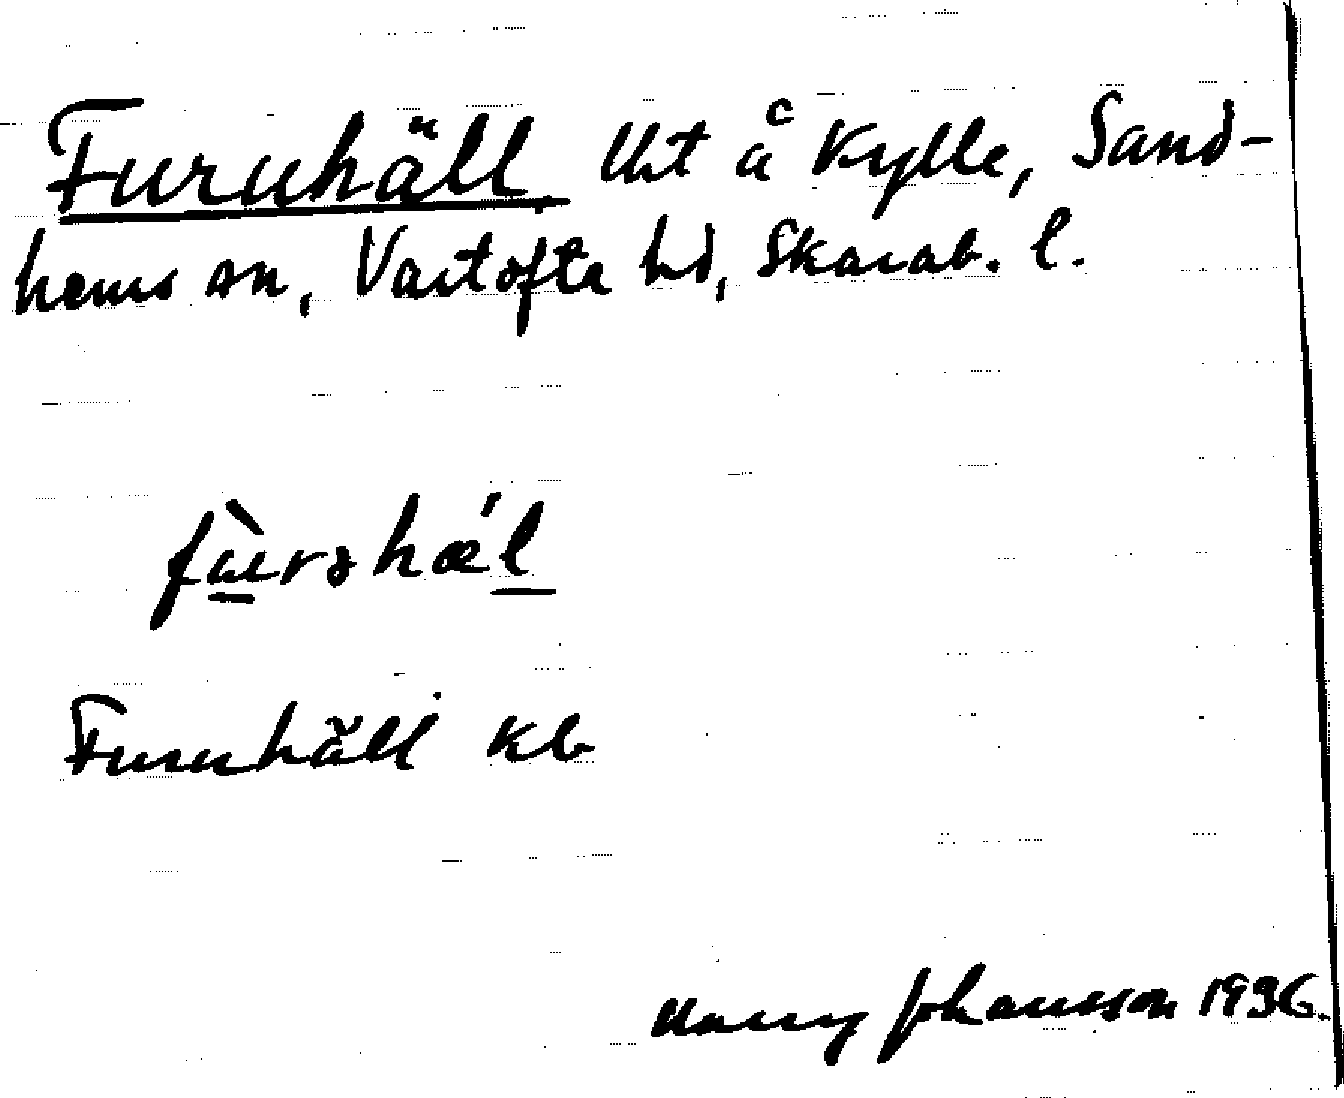 Furuhäll, lht å Kylle, Sand-
hems sn, Vartofta hd, Skarab. l.
fùrshǽl
Furuhäll kb
Harry Johansson 1936.